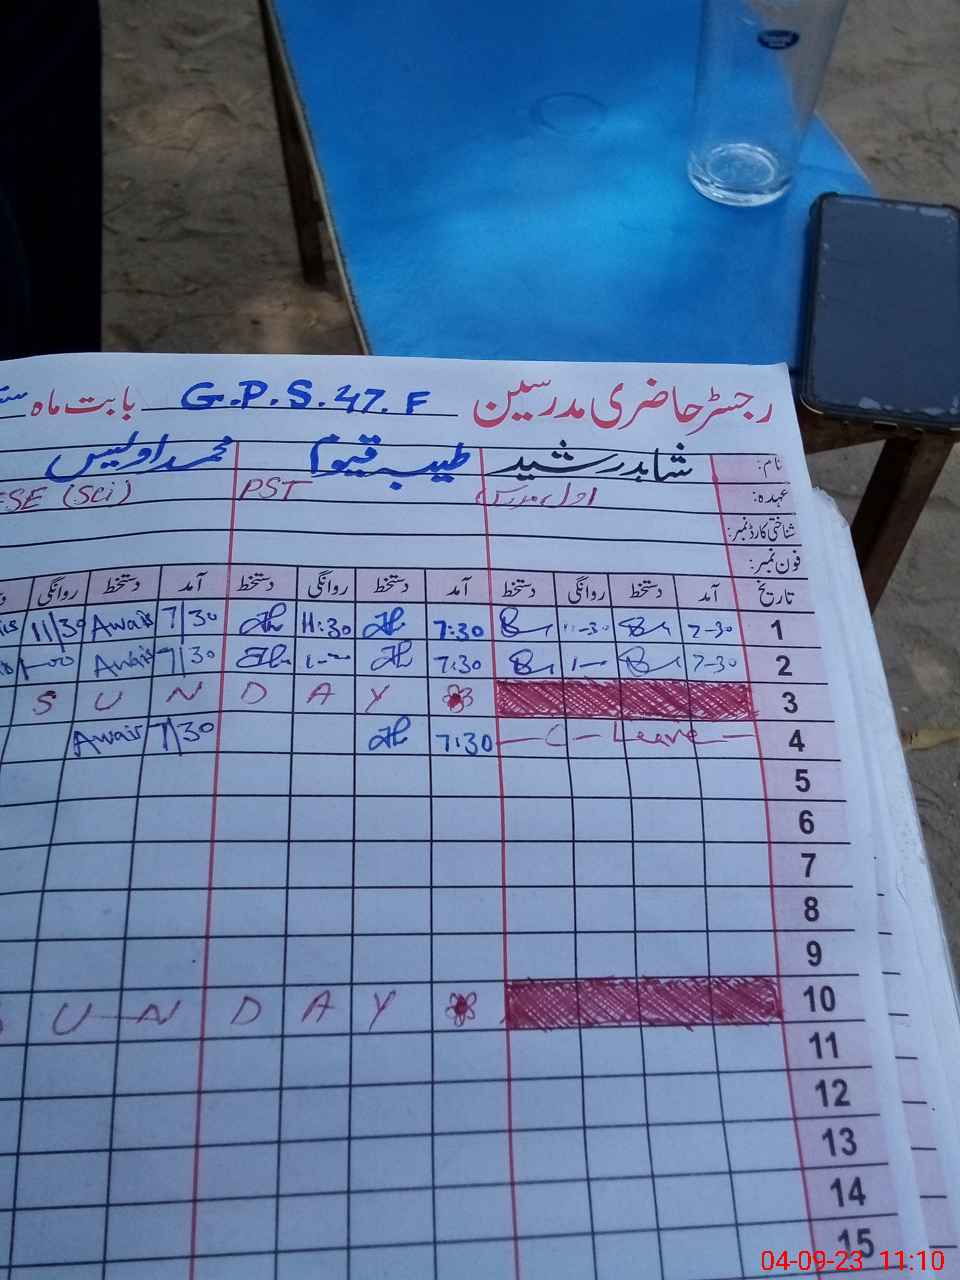 رجسٹر حاضری مدرسین G.P.S. 47. F بابت ماہ
نام: شاہد رشید طیب قیوم محمد اویس
عہدہ: اول مدرس PST ESE (Sci)
شناختی کارڈ نمبر:
فون نمبر:
تاریخ آمد دستخط روانگی دستخط آمد دستخط روانگی دستخط آمد دستخط روانگی
1 7-30 11-30 7:30 11:30 7/30 Awais 11/30
2 7-30 1- 7:30 1- 7/30 Awais 1-00
3 SUNDAY
4 C-Leave 7:30 7/30 Awais
5
6
7
8
9
10 UNDAY
11
12
13
14
15
04-09-23 11:10